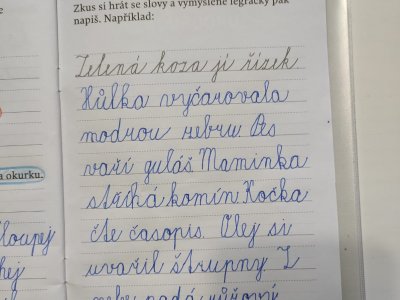 Zkus si hrát se slovy a vymyšlené legrácky pak
napiš. Například:
Zelená koza jí řízek
Hůlka vyčarovala
modrou zebru. Pes
vaří guláš. Maminka
stříhá komín. Kočka
čte časopis. Olej si
uvařil štrupny. Z
nebe padá
a okurku.
loupej
hej